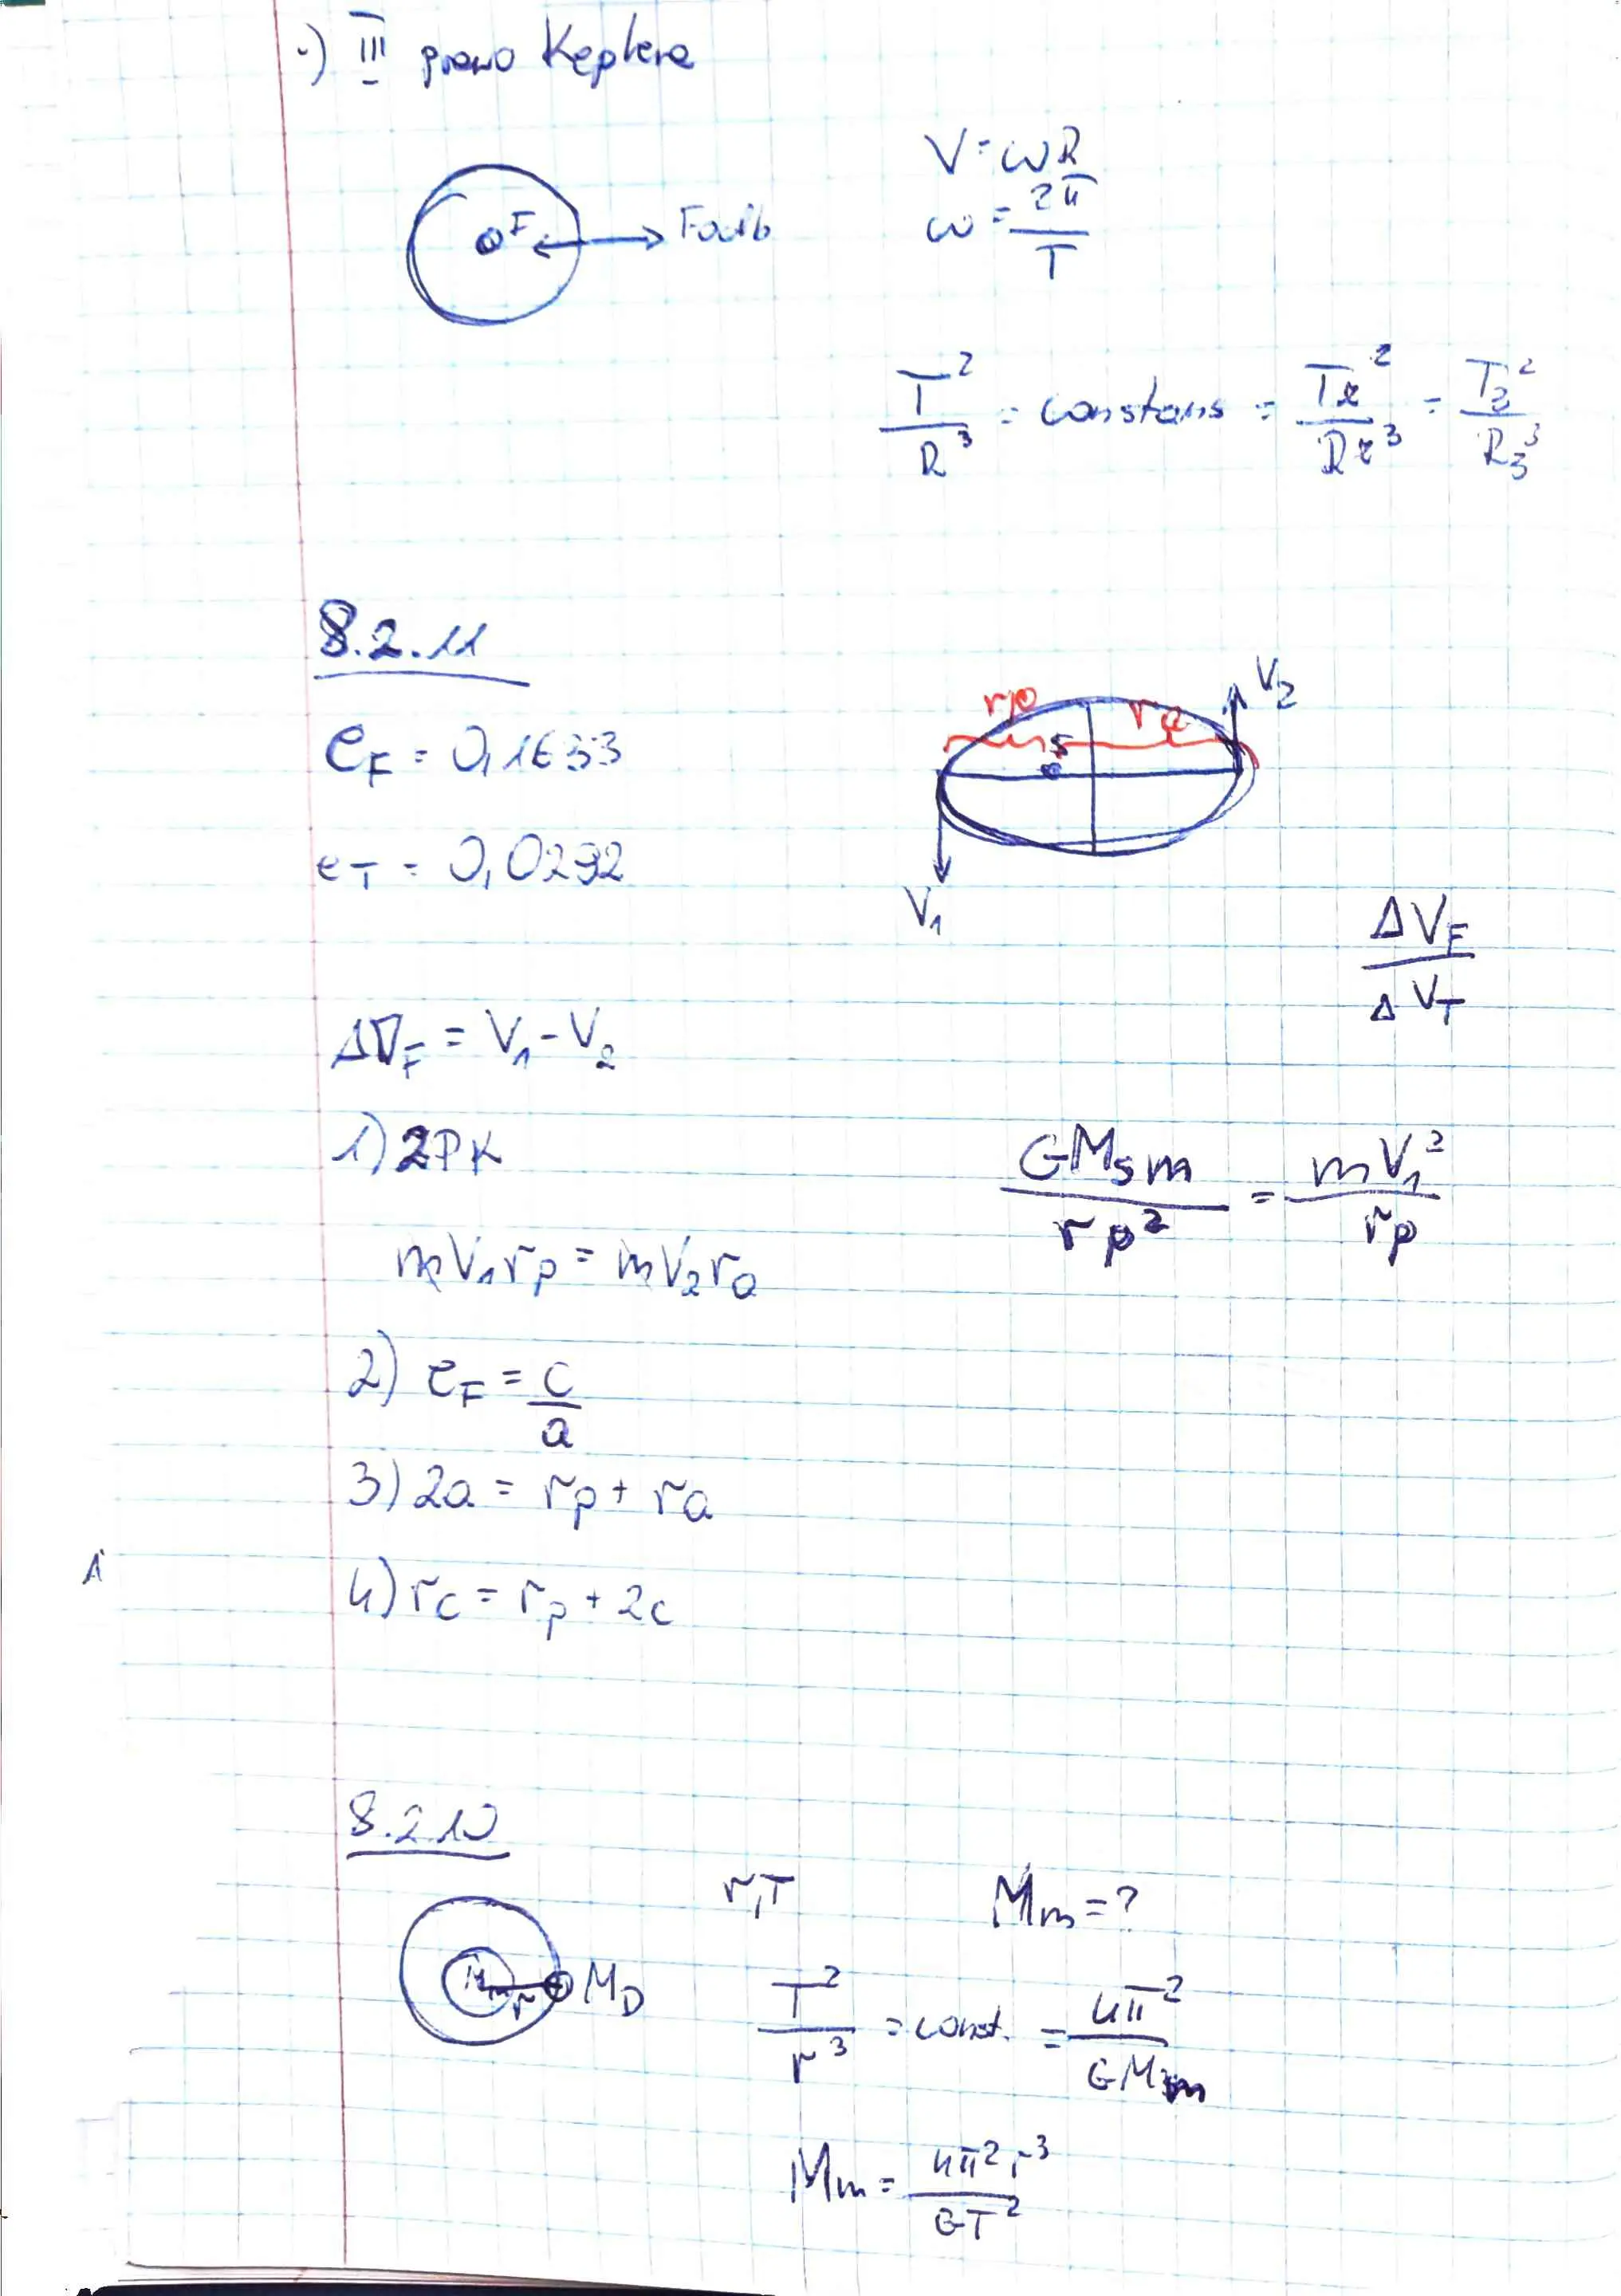 ·) III prawo Keplera
V = ωR
ω = 2π/T
F
Fodśb
T²/R³ = constans = T₂²/R₂³ = T₃²/R₃³
8.2.11
e_F = 0,1633
e_T = 0,0292
rp
ra
S
V₂
V₁
ΔV_F/ΔV_T
ΔV_F = V₁ - V₂
1) 2PK
GMsm/rp² = mV₁²/rp
mV₁rp = mV₂ra
2) e_F = c/a
3) 2a = rp + ra
4) rc = rp + 2c
8.2.10
r,T
Mm = ?
r
M_D
T²/r³ = const. = 4π²/GMm
Mm = 4π²r³/GT²